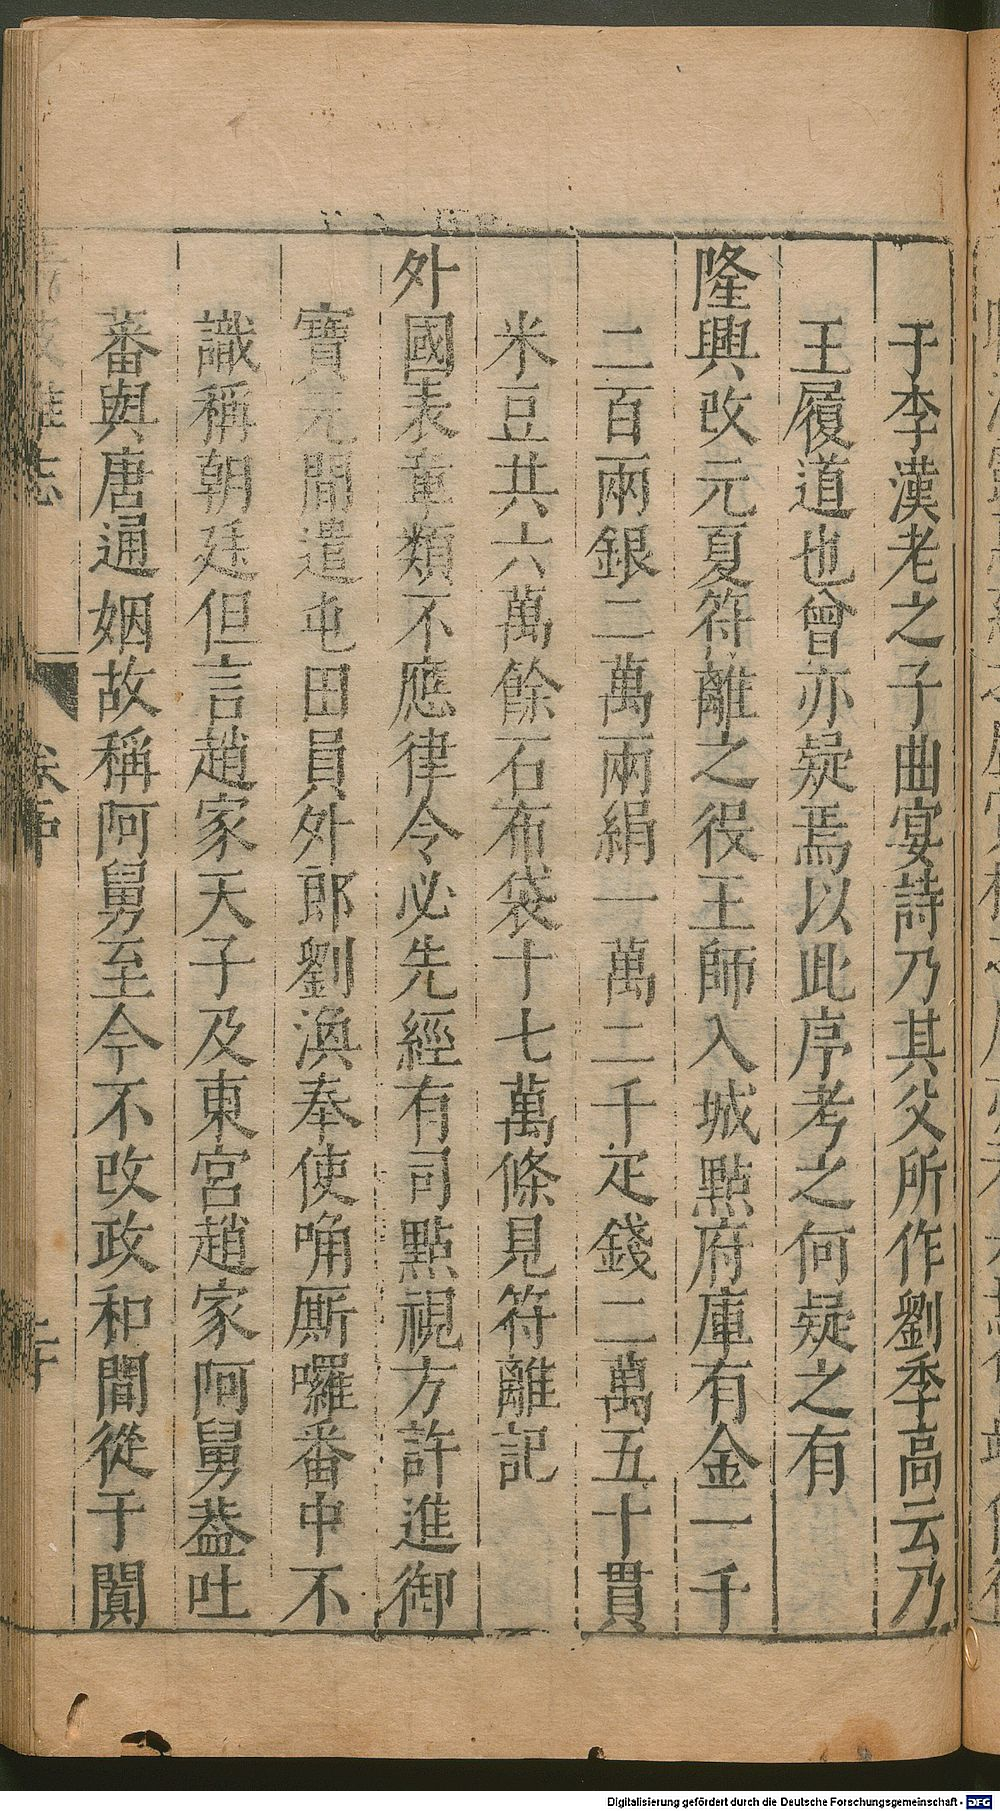 于李漢老之子曲宴詩乃其父所作劉季高云乃
王履道也曾亦疑焉以此序考之何疑之有
隆興改元夏符離之役王師入城點府庫有金一千
二百兩銀二萬兩絹一萬二千疋錢二萬五十貫
米豆共六萬餘石布袋十七萬條見符離記
外國表章類不應律令必先經有司點視方許進御
寶元間遣屯田員外郎劉渙奉使唃厮囉番中不
識稱朝廷但言趙家天子及東宮趙家阿舅葢吐
蕃與唐通姻故稱阿舅至今不改政和間從于闐
Digitalisierung gefördert durch die Deutsche Forschungsgemeinschaft - DFG